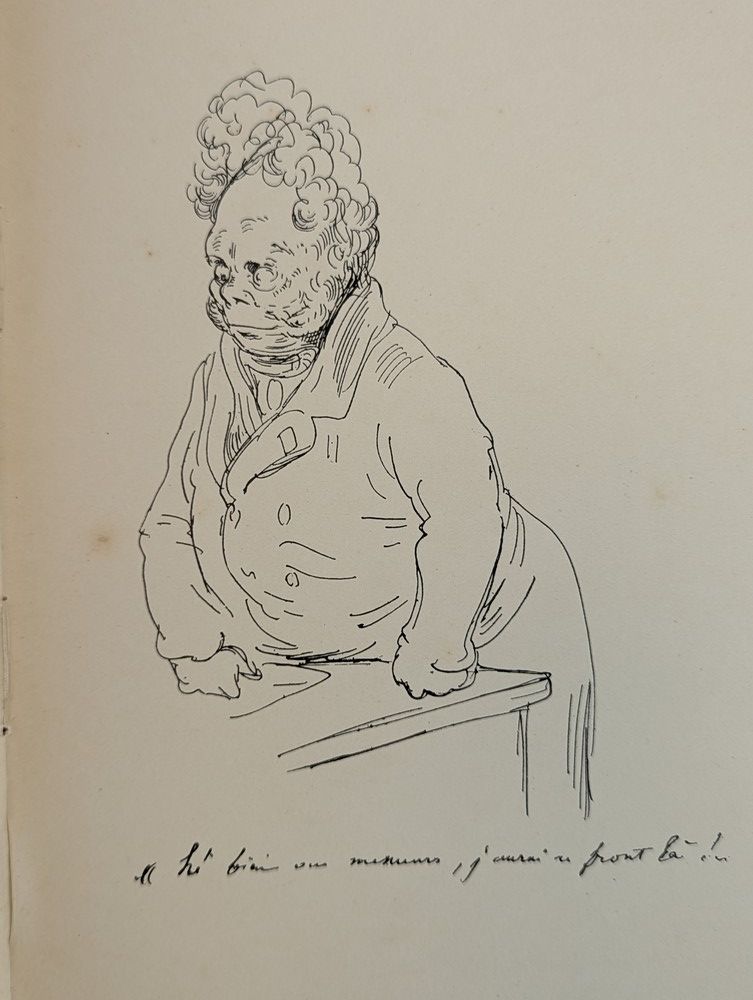 « hé bien oui messieurs, j'aurai ce front là !..